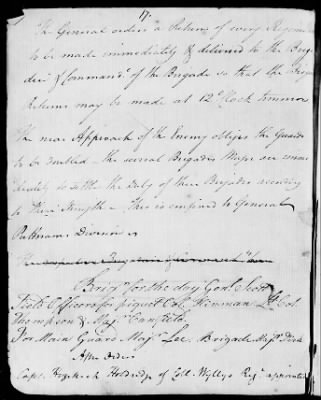 17.
The General orders a Return of every Regim
to be made immediately & delivered to the Brig
& Command.g of the Brigade so that the Brigd
Returns may be made at 12 oClock tomorrow
The near Approach of the Enemy obliges the Guards
to be doubled The several Brigades Majrs are imme
diately to settle the duty of their Brigades according
to their Strength – This is confined to General
Putnams Division
Brigr for the day Genl Scott
Field Officers for piquet Col. Hinman Lt Col.
Thompson & Majr Canfield
For Main Guard Majr Lee. Brigade Majr Dish
After Orders
Capt. Hezekiah Holdridge of Coll Wyllys Regt appointed